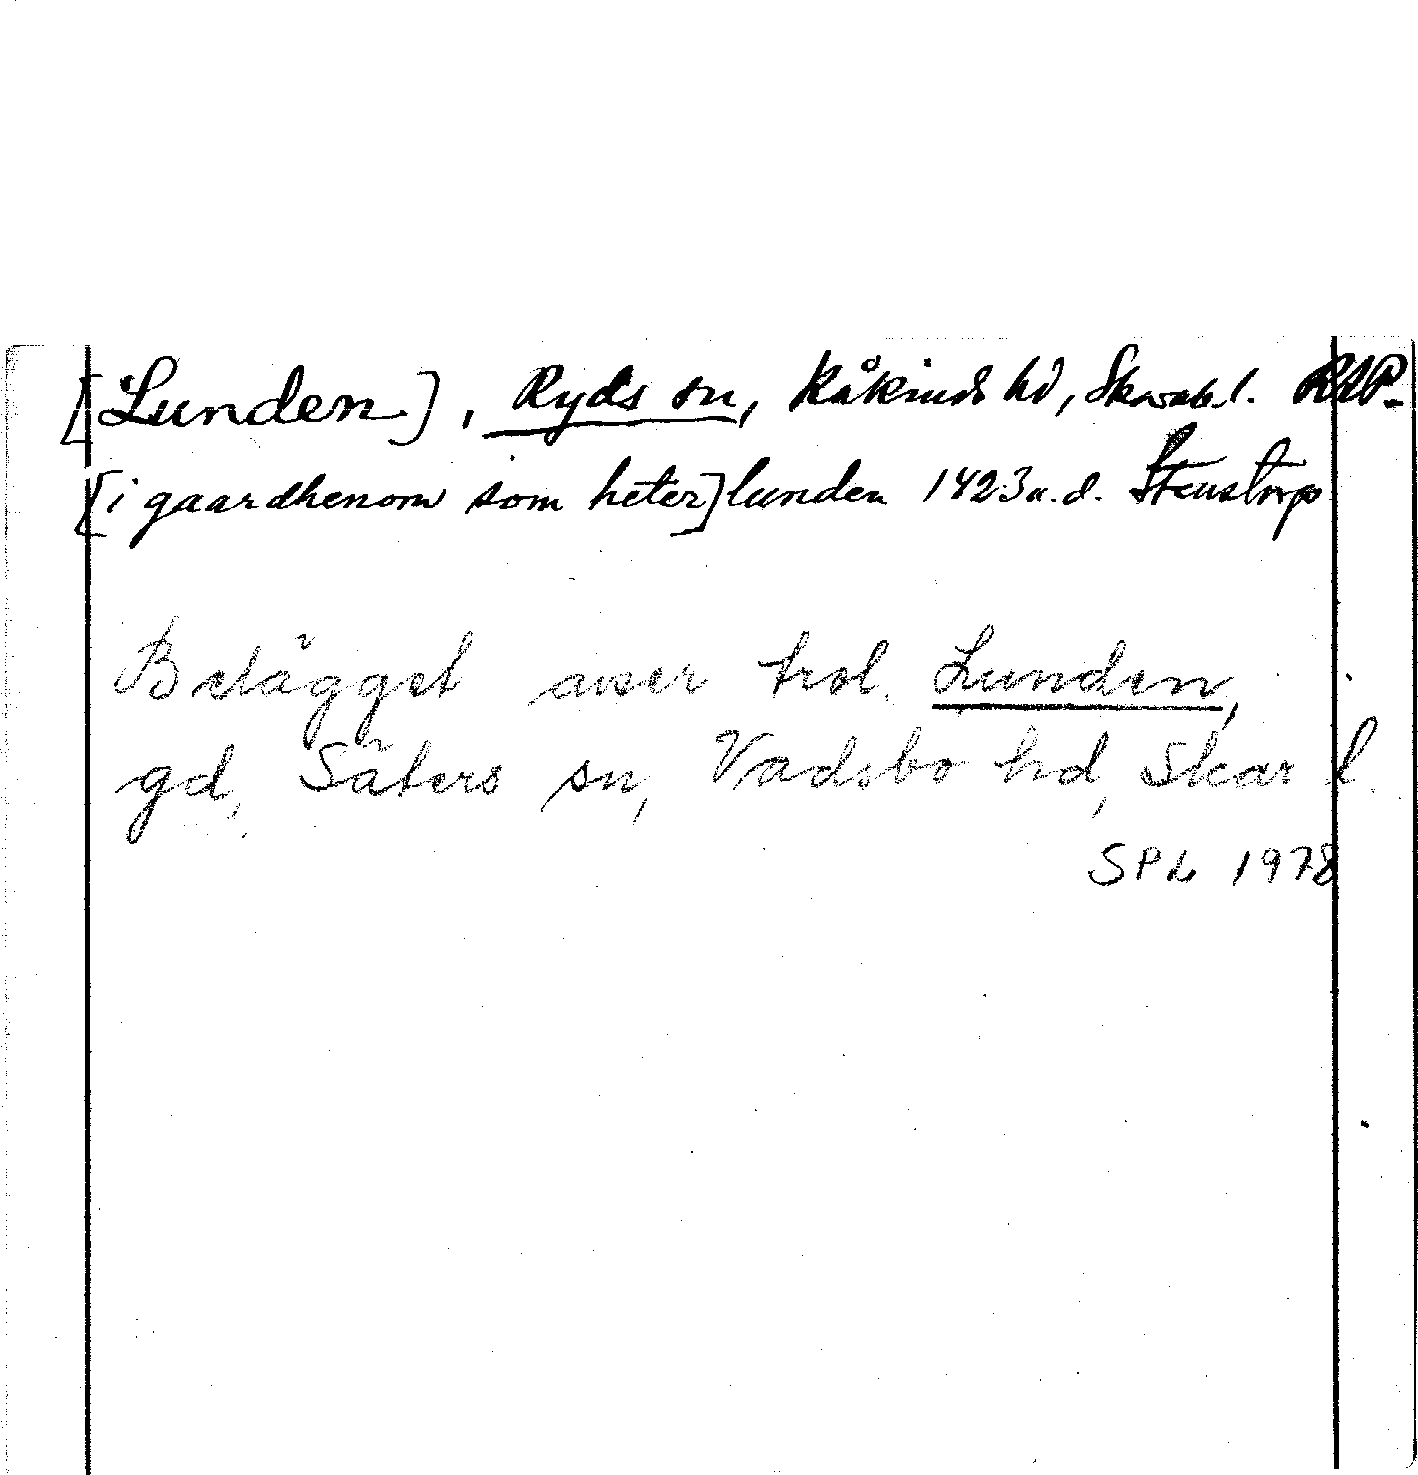 [Lunden], Ryds sn, Kåkinds hd, Skarab. l. RAP-
[i gaardhenom som heter] lunden 1423 u. d. Stenstorp
Belägget avser trol. Lunden,
gd, Säters sn, Vadsbo hd, Skar l.
SPL 1978